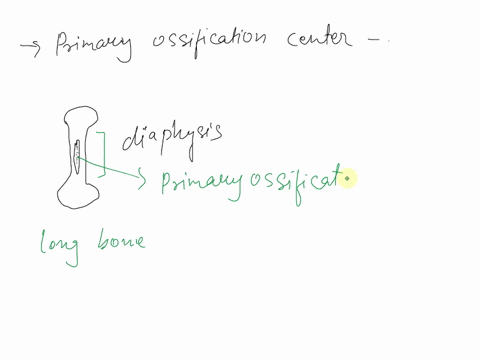 → Primary ossification center -.
diaphysis
Primary ossificat
long bone